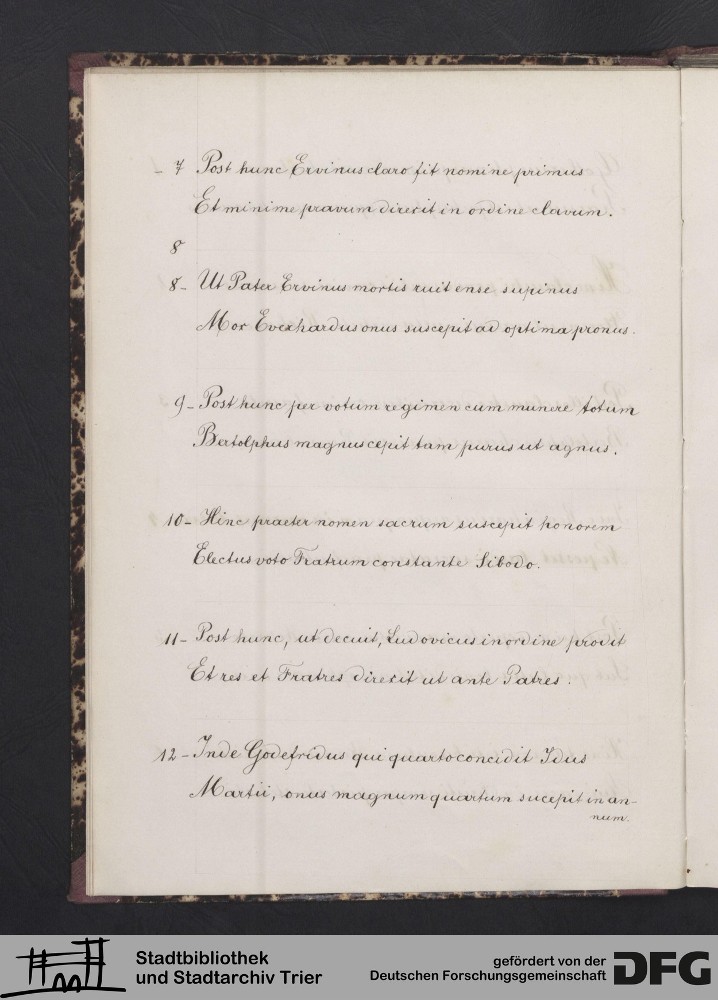 - 7 Post hunc Ervinus claro fit nomine primus
Et minime pravum direxit in ordine clavum.
8
8- Ut Pater Ervinus mortis ruit ense supinus
Mox Everhardus onus suscepit ad optima pronus.
9- Post hunc per votum regimen cum munere totum
Bertolphus magnus cepit tam purus ut agnus.
10- Hinc praeter nomen sacrum suscepit honorem
Electus voto Fratrum constante Sibodo.
11- Post hunc, ut decuit, Ludovicus in ordine prodit
Et res et Fratres direxit ut ante Patres.
12- Inde Godefridus qui quarto concidit Idus
Martii, onus magnum quartum sucepit in an-
num.
Stadtbibliothek
und Stadtarchiv Trier
gefördert von der
Deutschen Forschungsgemeinschaft
DFG